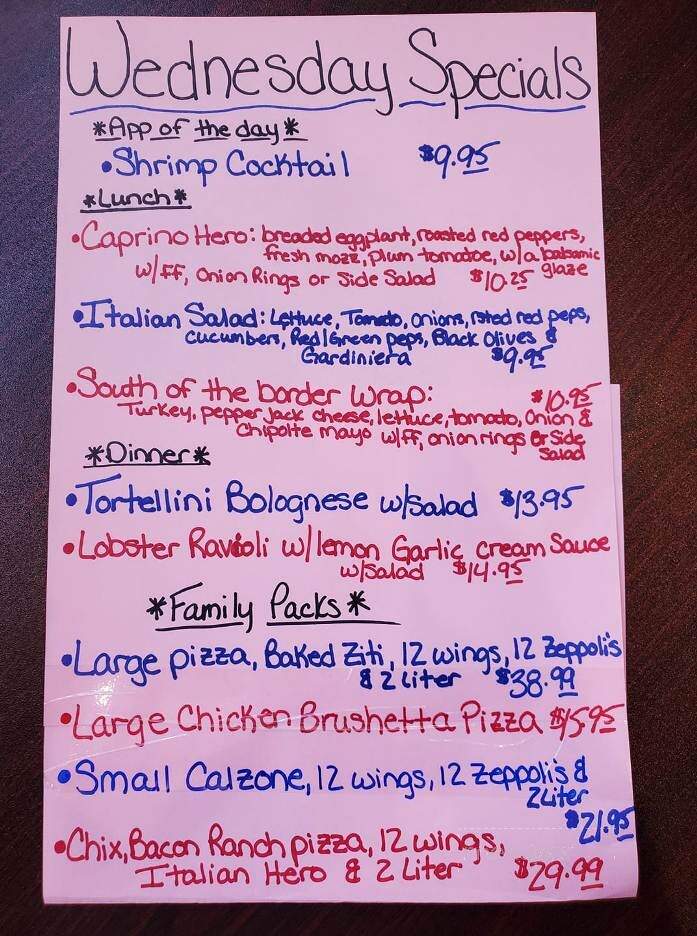 Wednesday Specials
*App of the day*
•Shrimp Cocktail $9.95
*Lunch*
•Caprino Hero: breaded eggplant, roasted red peppers,
fresh mozz, plum tomatoe, w/a balsamic
glaze
w/ff, Onion Rings or Side Salad $10.25
•Italian Salad: Lettuce, Tomato, onions, rsted red peps,
cucumbers, Red/Green peps, Black Olives &
Gardiniera $9.95
•South of the border Wrap: $10.95
Turkey, pepper jack cheese, lettuce, tomato, Onion &
Chipolte mayo w/ff, onion rings or Side
Salad
*Dinner*
•Tortellini Bolognese w/salad $13.95
•Lobster Ravioli w/lemon Garlic cream Sauce
w/salad $14.95
*Family Packs*
•Large pizza, Baked Ziti, 12 wings, 12 Zeppoli's
& 2 Liter $38.99
•Large Chicken Brushetta Pizza $15.95
•Small Calzone, 12 wings, 12 Zeppoli's &
2 Liter
$21.95
•Chix, Bacon Ranch pizza, 12 wings,
Italian Hero & 2 Liter $29.99